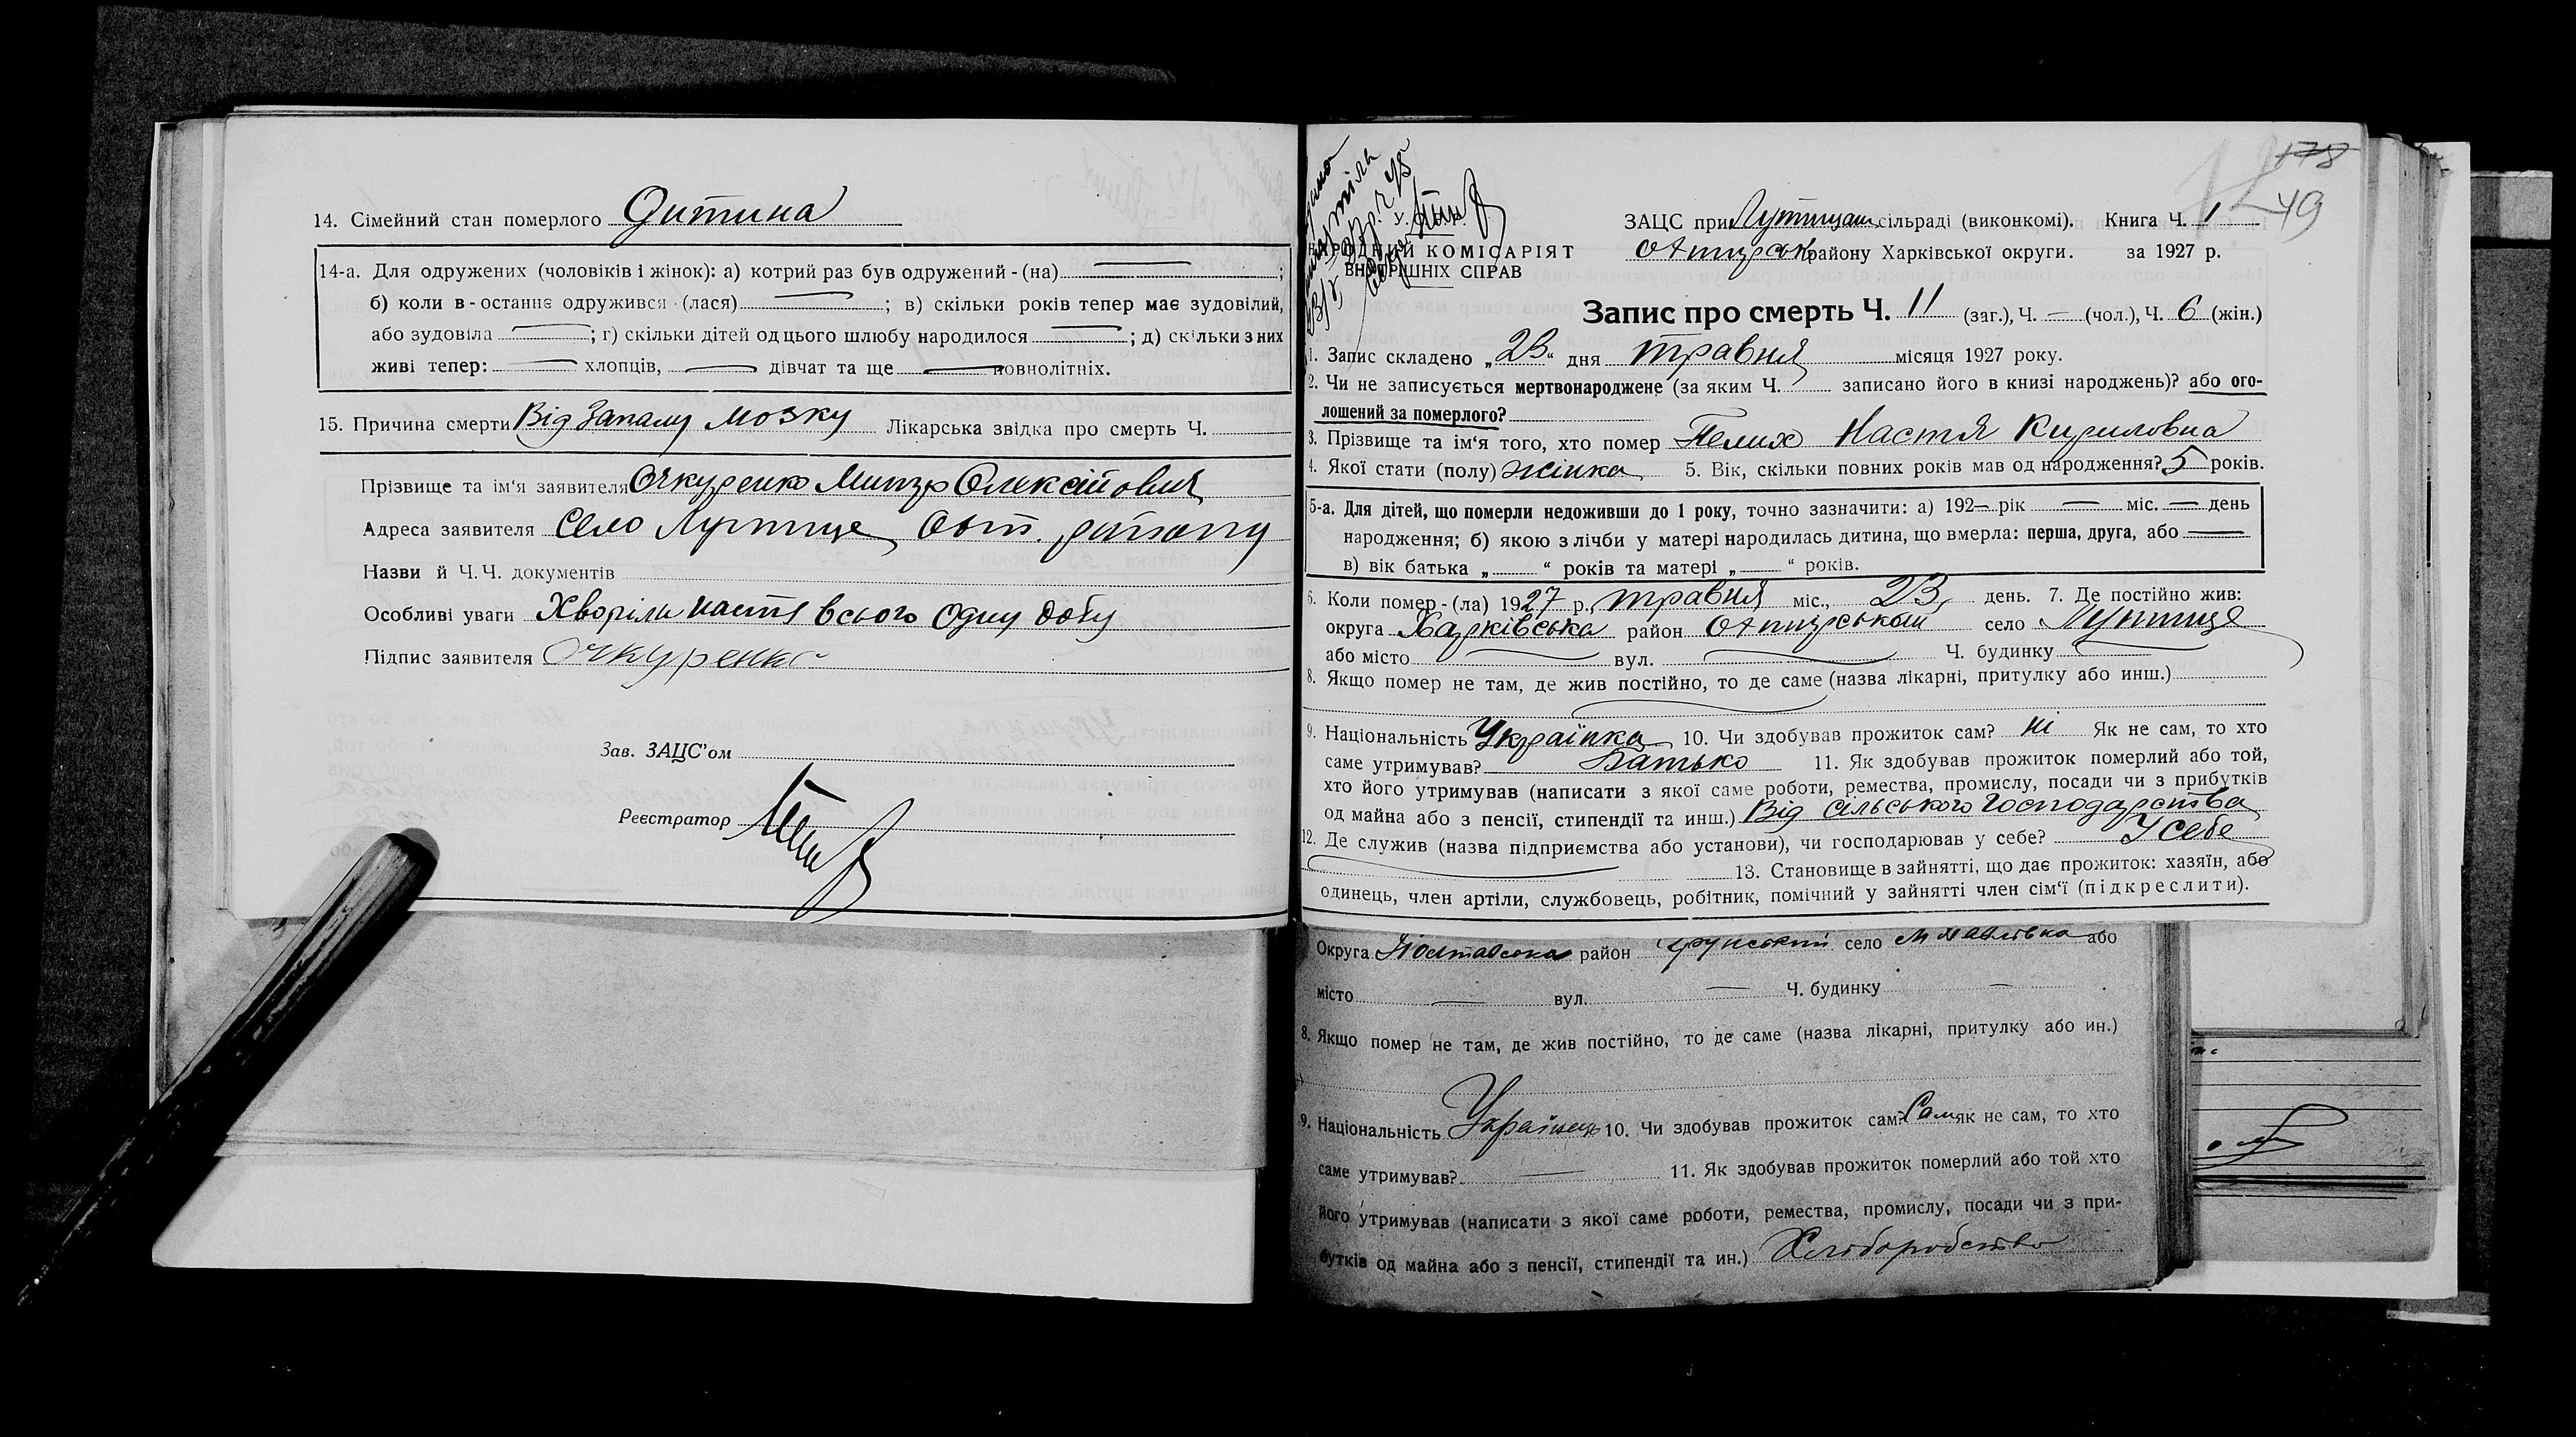 14. Сімейний стан померлого Дитина
14-а. Для одружених (чоловіків і жінок): а) котрий раз був одружений-(на) — ;
б) коли в-останнє одружився (лася) — ; в) скільки років тепер має зудовілий,
або зудовіла — ; г) скільки дітей од цього шлюбу народилося — ; д) скільки з них
живі тепер: — хлопців, — дівчат та ще — повнолітніх.
15. Причина смерти Від Запалу мозку Лікарська звідка про смерть Ч.
Прізвище та ім'я заявителя Очкуренко Олексійович
Адреса заявителя Село Лутище Охт. району
Назви й Ч.Ч. документів
Особливі уваги Хворіла Настя всього Одну добу
Підпис заявителя Очкуренко
Зав. ЗАЦС'ом
Реєстратор
178
49
НАРОДНИЙ КОМІСАРІЯТ
ВНУТРІШНІХ СПРАВ
ЗАЦС при Лутищан. сільраді (виконкомі). Книга Ч. 1
Охтирськ району Харківської округи. за 1927 р.
Запис про смерть Ч. 11 (заг.), Ч. — (чол.), Ч. 6 (жін.)
1. Запис складено „23" дня травня місяця 1927 року.
2. Чи не записується мертвонароджене (за яким Ч. записано його в книзі народжень)? або ого-
лошений за померлого?
3. Прізвище та ім'я того, хто помер Пелих Настя Кириловна
4. Якої стати (полу) жінка 5. Вік, скільки повних років мав од народження? 5 років.
5-а. Для дітей, що померли недоживши до 1 року, точно зазначити: а) 192— рік — міс. — день
народження; б) якою з лічби у матері народилась дитина, що вмерла: перша, друга, або —
в) вік батька „ " років та матері „ " років.
6. Коли помер-(ла) 1927 р. травня міс., 23, день. 7. Де постійно жив:
округа Харківська район Охтирський село Лутище
або місто — вул. — Ч. будинку —
8. Якщо помер не там, де жив постійно, то де саме (назва лікарні, притулку або инш.)
9. Національність Українка 10. Чи здобував прожиток сам? ні Як не сам, то хто
саме утримував? Батько 11. Як здобував прожиток померлий або той,
хто його утримував (написати з якої саме роботи, ремества, промислу, посади чи з прибутків
од майна або з пенсії, стипендії та инш.) Від сільського господарства
12. Де служив (назва підприємства або установи), чи господарював у себе? У себе
13. Становище в зайнятті, що дає прожиток: хазяїн, або
одинець, член артіли, службовець, робітник, помічний у зайнятті член сім'ї (підкреслити).
Округа Полтавська район село або
місто — вул. — Ч. будинку —
8. Якщо помер не там, де жив постійно, то де саме (назва лікарні, притулку або ин.)
9. Національність Українець 10. Чи здобував прожиток сам? Сам як не сам, то хто
саме утримував? — 11. Як здобував прожиток померлий або той хто
його утримував (написати з якої саме роботи, ремества, промислу, посади чи з при-
бутків од майна або з пенсії, стипендії та ин.) Хліборобство